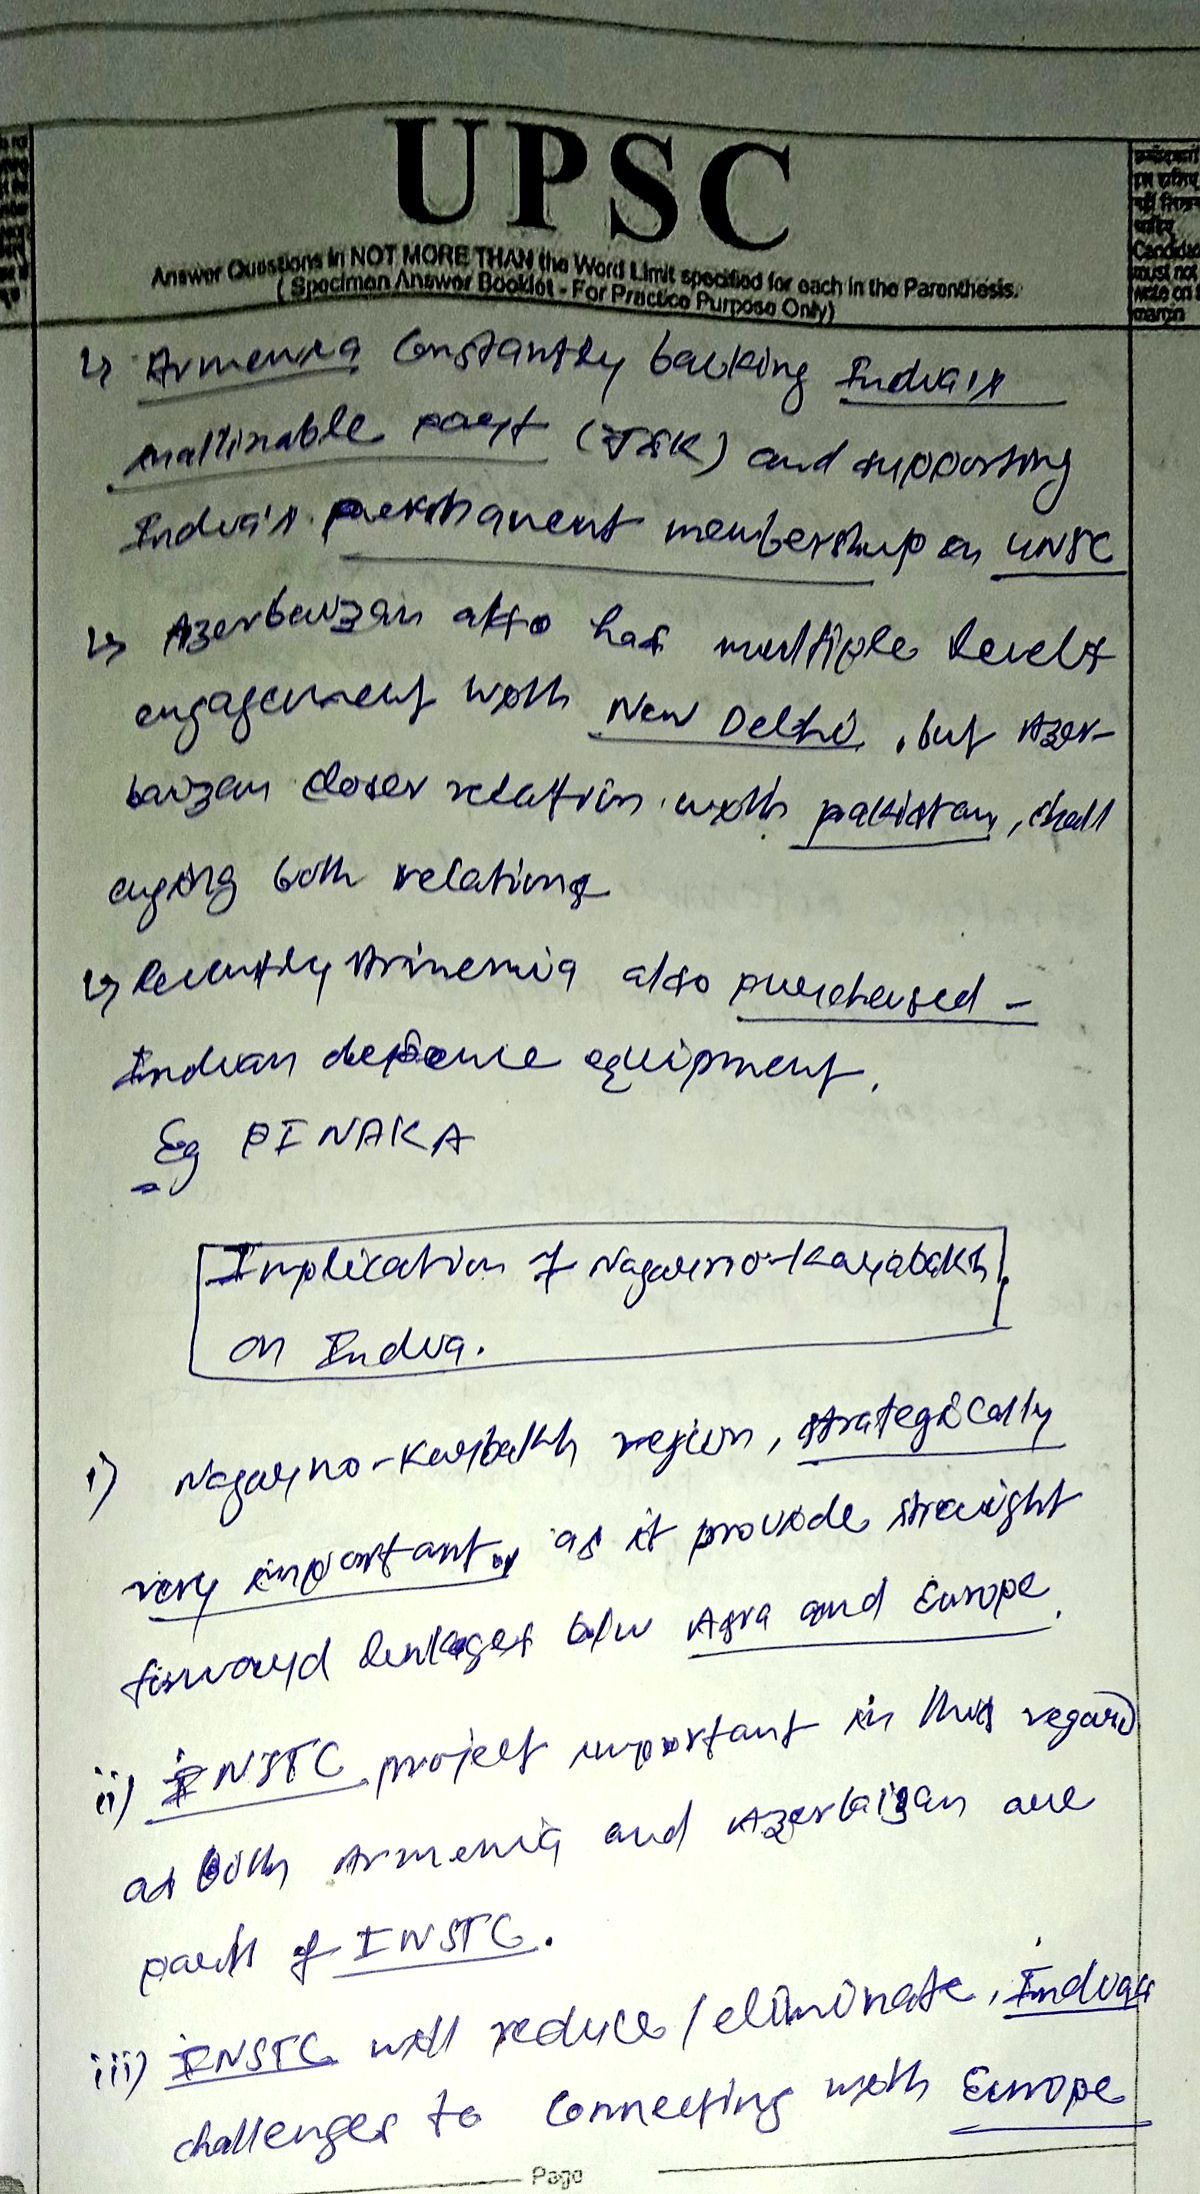 UPSC
Answer Questions in NOT MORE THAN the Word Limit specified for each in the Parenthesis.
( Specimen Answer Booklet - For Practice Purpose Only)
उम्मीदवारों
इस हाशिए
नहीं लिखना
चाहिए
Candidates
must not
write on
margin
↳ Armenia Constantly backing India's
part (J&K) and supporting
India's permanent membership on UNSC
↳ Azerbaizan also has multiple levels
engagement with New Delhi, but Azer-
baizan closer relation with pakistan, chall
enging both relations
↳ Recently Armenia also purchased -
Indian defence equipment.
Eg PINAKA
Implication of Nagarno-Karabakh
on India.
i) Nagarno-Karbakh region, strategically
very important, as it provide straight
forward linkages b/w Asia and Europe.
ii) INSTC project important in this regard
as both Armenia and Azerbaizan are
parts of INSTC.
iii) INSTC will reduce/eliminate, India's
challenges to connecting with Europe
Page